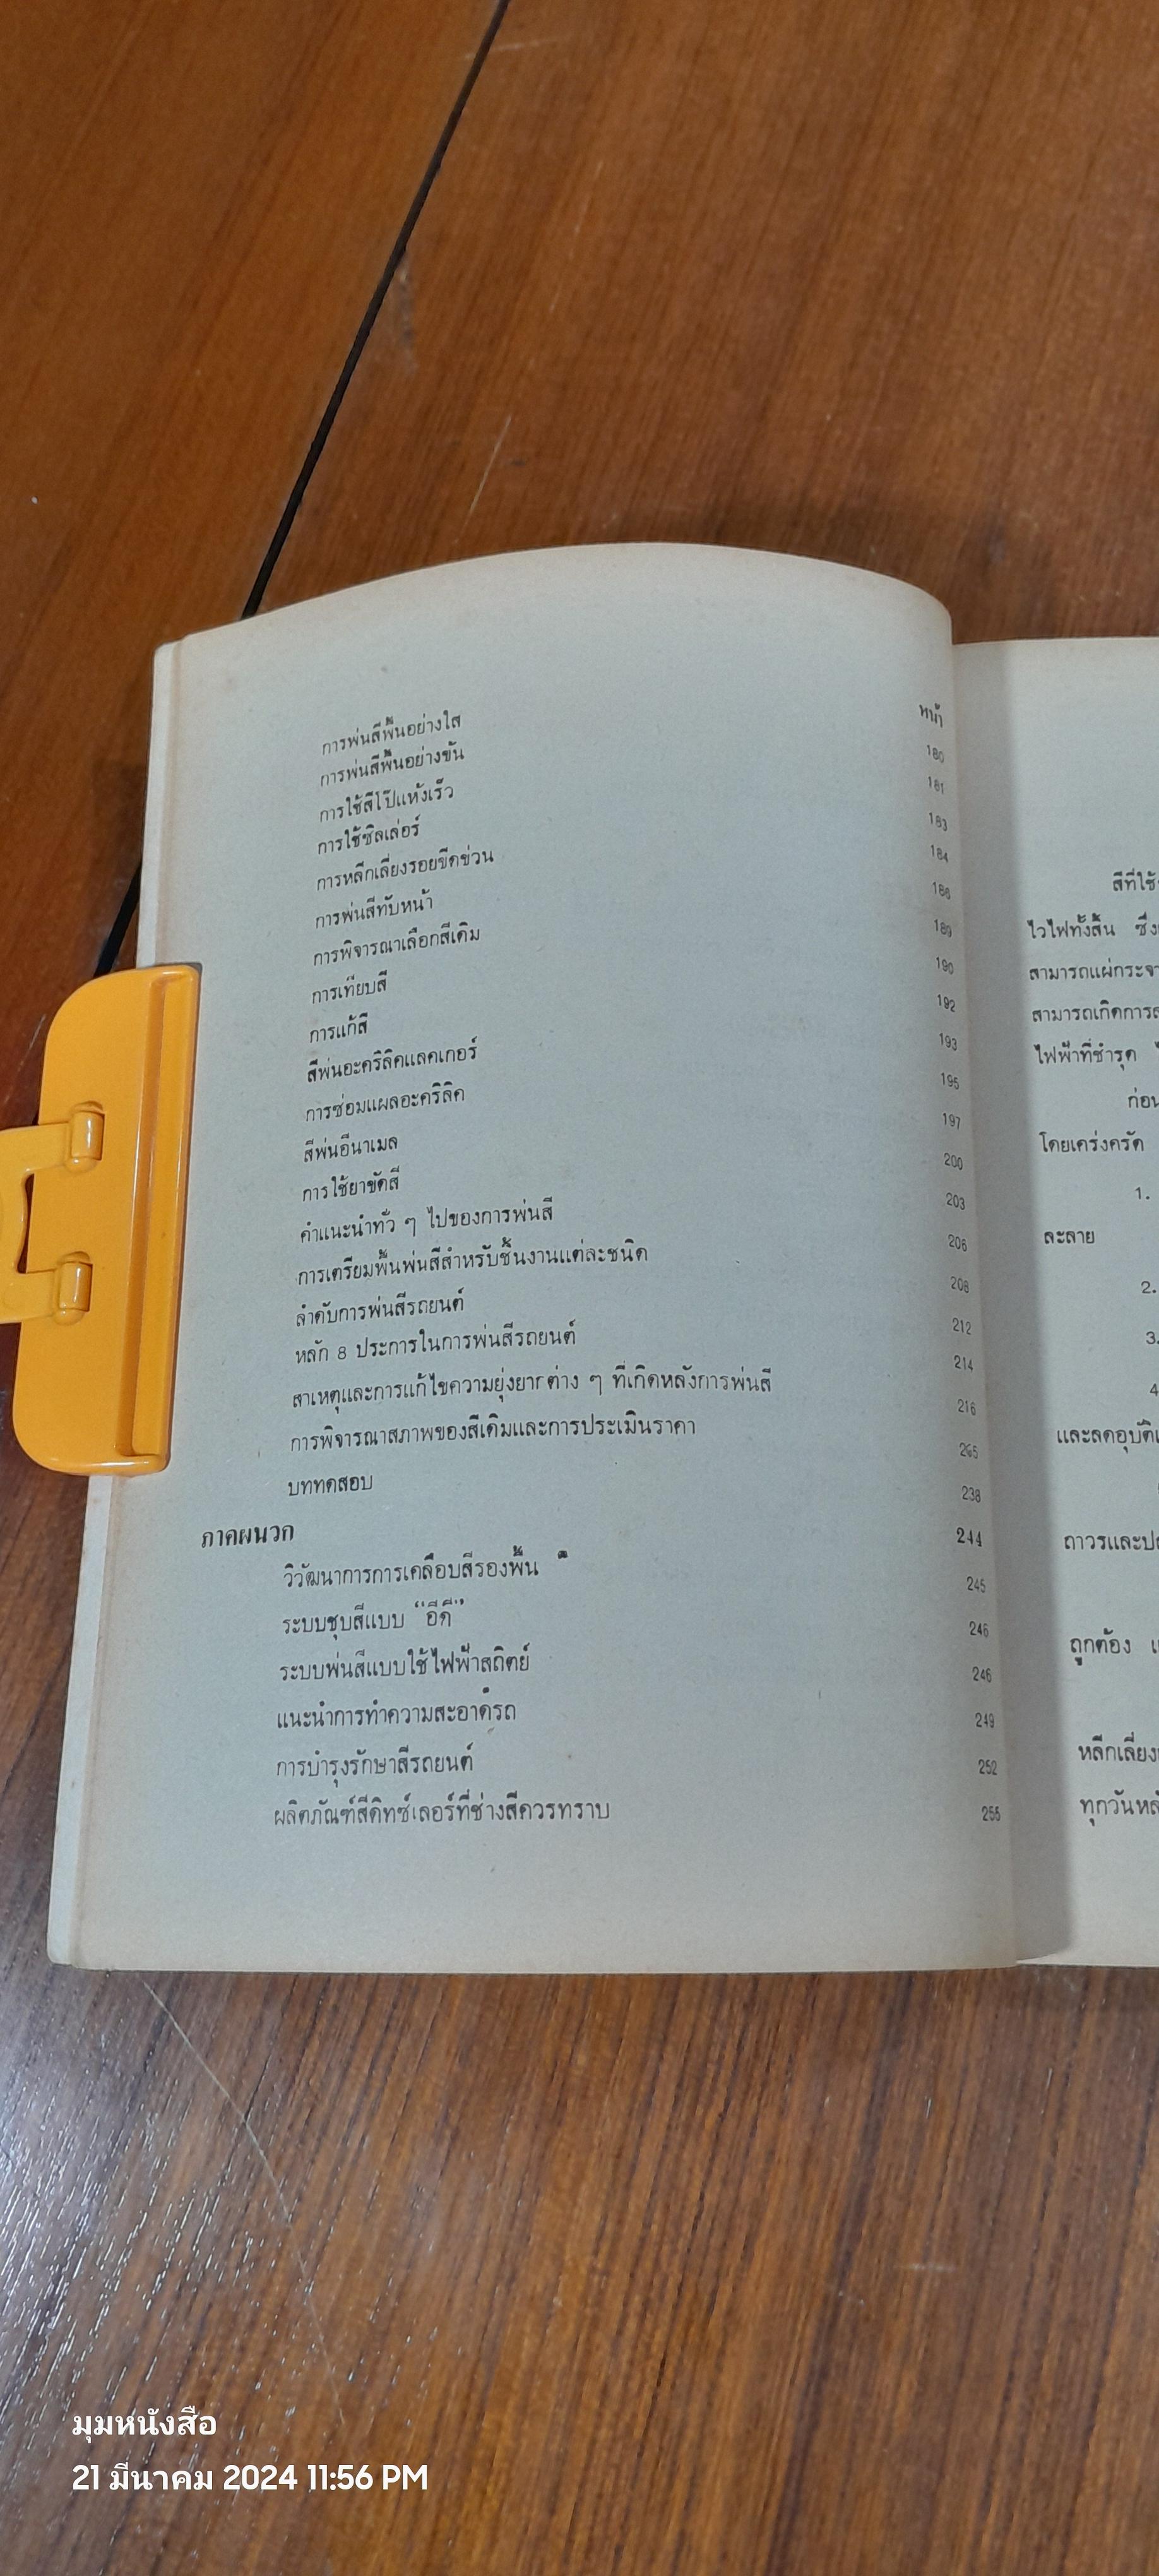 หน้า
การพ่นสีพื้นอย่างใส 180
การพ่นสีพื้นอย่างข้น 181
การใช้สีโป๊แห้งเร็ว 183
การใช้ซิลเล่อร์ 184
การหลีกเลี่ยงรอยขีดข่วน 186
การพ่นสีทับหน้า 189
การพิจารณาเลือกสีเดิม 190
การเทียบสี 192
การแก้สี 193
สีพ่นอะคริลิคแลคเกอร์ 195
การซ่อมแผลอะคริลิค 197
สีพ่นอีนาเมล 200
การใช้ยาขัดสี 203
คำแนะนำทั่ว ๆ ไปของการพ่นสี 206
การเตรียมพื้นพ่นสีสำหรับชิ้นงานแต่ละชนิด 208
ลำดับการพ่นสีรถยนต์ 212
หลัก 8 ประการในการพ่นสีรถยนต์ 214
สาเหตุและการแก้ไขความยุ่งยากต่าง ๆ ที่เกิดหลังการพ่นสี 216
การพิจารณาสภาพของสีเดิมและการประเมินราคา
บททดสอบ 238
ภาคผนวก 244
วิวัฒนาการการเคลือบสีรองพื้น 245
ระบบชุบสีแบบ "อีดี" 246
ระบบพ่นสีแบบใช้ไฟฟ้าสถิตย์ 246
แนะนำการทำความสะอาดรถ 249
การบำรุงรักษาสีรถยนต์ 252
ผลิตภัณฑ์สีดิทซ์เลอร์ที่ช่างสีควรทราบ 255
สีที่ใช้
ไวไฟทั้งสิ้น
สามารถแผ่กระจา
สามารถเกิดการ
ไฟฟ้าที่ชำรุด
ก่อน
โดยเคร่งครัด
1.
ละลาย
2.
3.
4
และลดอุบัติ
ถาวรและ
ถูกต้อง
หลีกเลี่ยง
ทุกวันหลั
มุมหนังสือ
21 มีนาคม 2024 11:56 PM